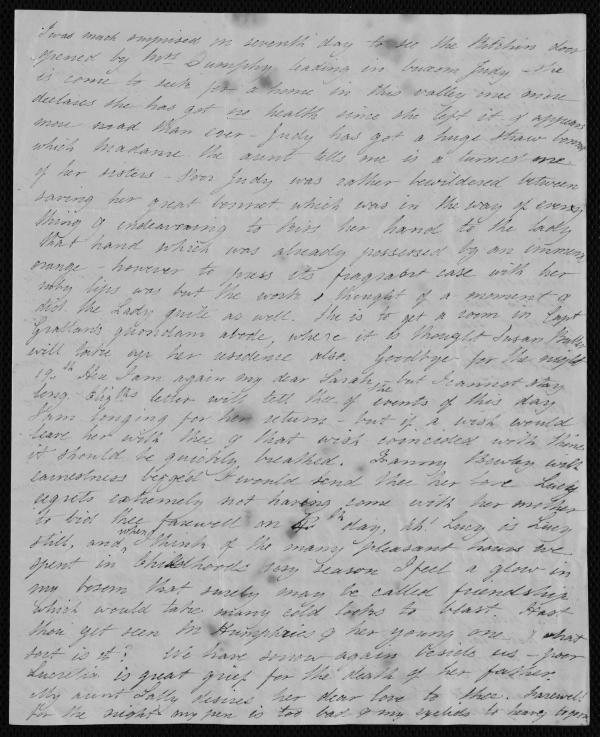 I was much surprised on seventh day to see the Kitchen door
opened by Mrs Dumphy leading in buxom Judy - she
is come to seek for a home in this valley once more
declares she has got no health since she left it & appears
more mad than ever - Judy has got a huge straw bonnet
which Madame the aunt tells me is a turned one
of her sisters - Poor Judy was rather bewildered between
saving her great bonnet which was in the way of every
thing & endeavouring to kiss her hand to the lady
that hand which was already possessed by an immense
orange - however to press its fragrant case with her
ruby lips was but the work & thought of a moment &
did the Lady quite as well. She is to get a room in Capt
quondam abode, where it is thought Susan
will take up her residence also. Goodbye for the night
19.th Here I am again my dear Sarah, but I cannot stay
long. Eliz.ths letter will tell thee of the events of this day
I am longing for her return - but if a wish would
leave her with thee & that wish coincided with thine
it should be quickly breathed. Fanny with
earnestness begged I would send thee her love Lucy
regrets extremely not having come with her mother
to bid thee farewell on th day, Ah! Lucy is Lucy
still, and when I think of the many pleasant hours we
spent in Childhoods rosy season I feel a glow in
my bosom that surely may be called friendship
which would take many cold looks to blast Hast
thou yet seen M Humphries & her young one & what
sort is it? We have sorrow again beside us - poor
Lucretia is great grief for the death of her father.
My aunt Sally desires her dear love to thee. Farewell
for the night my pen is too bad & my eyelids to heavy to